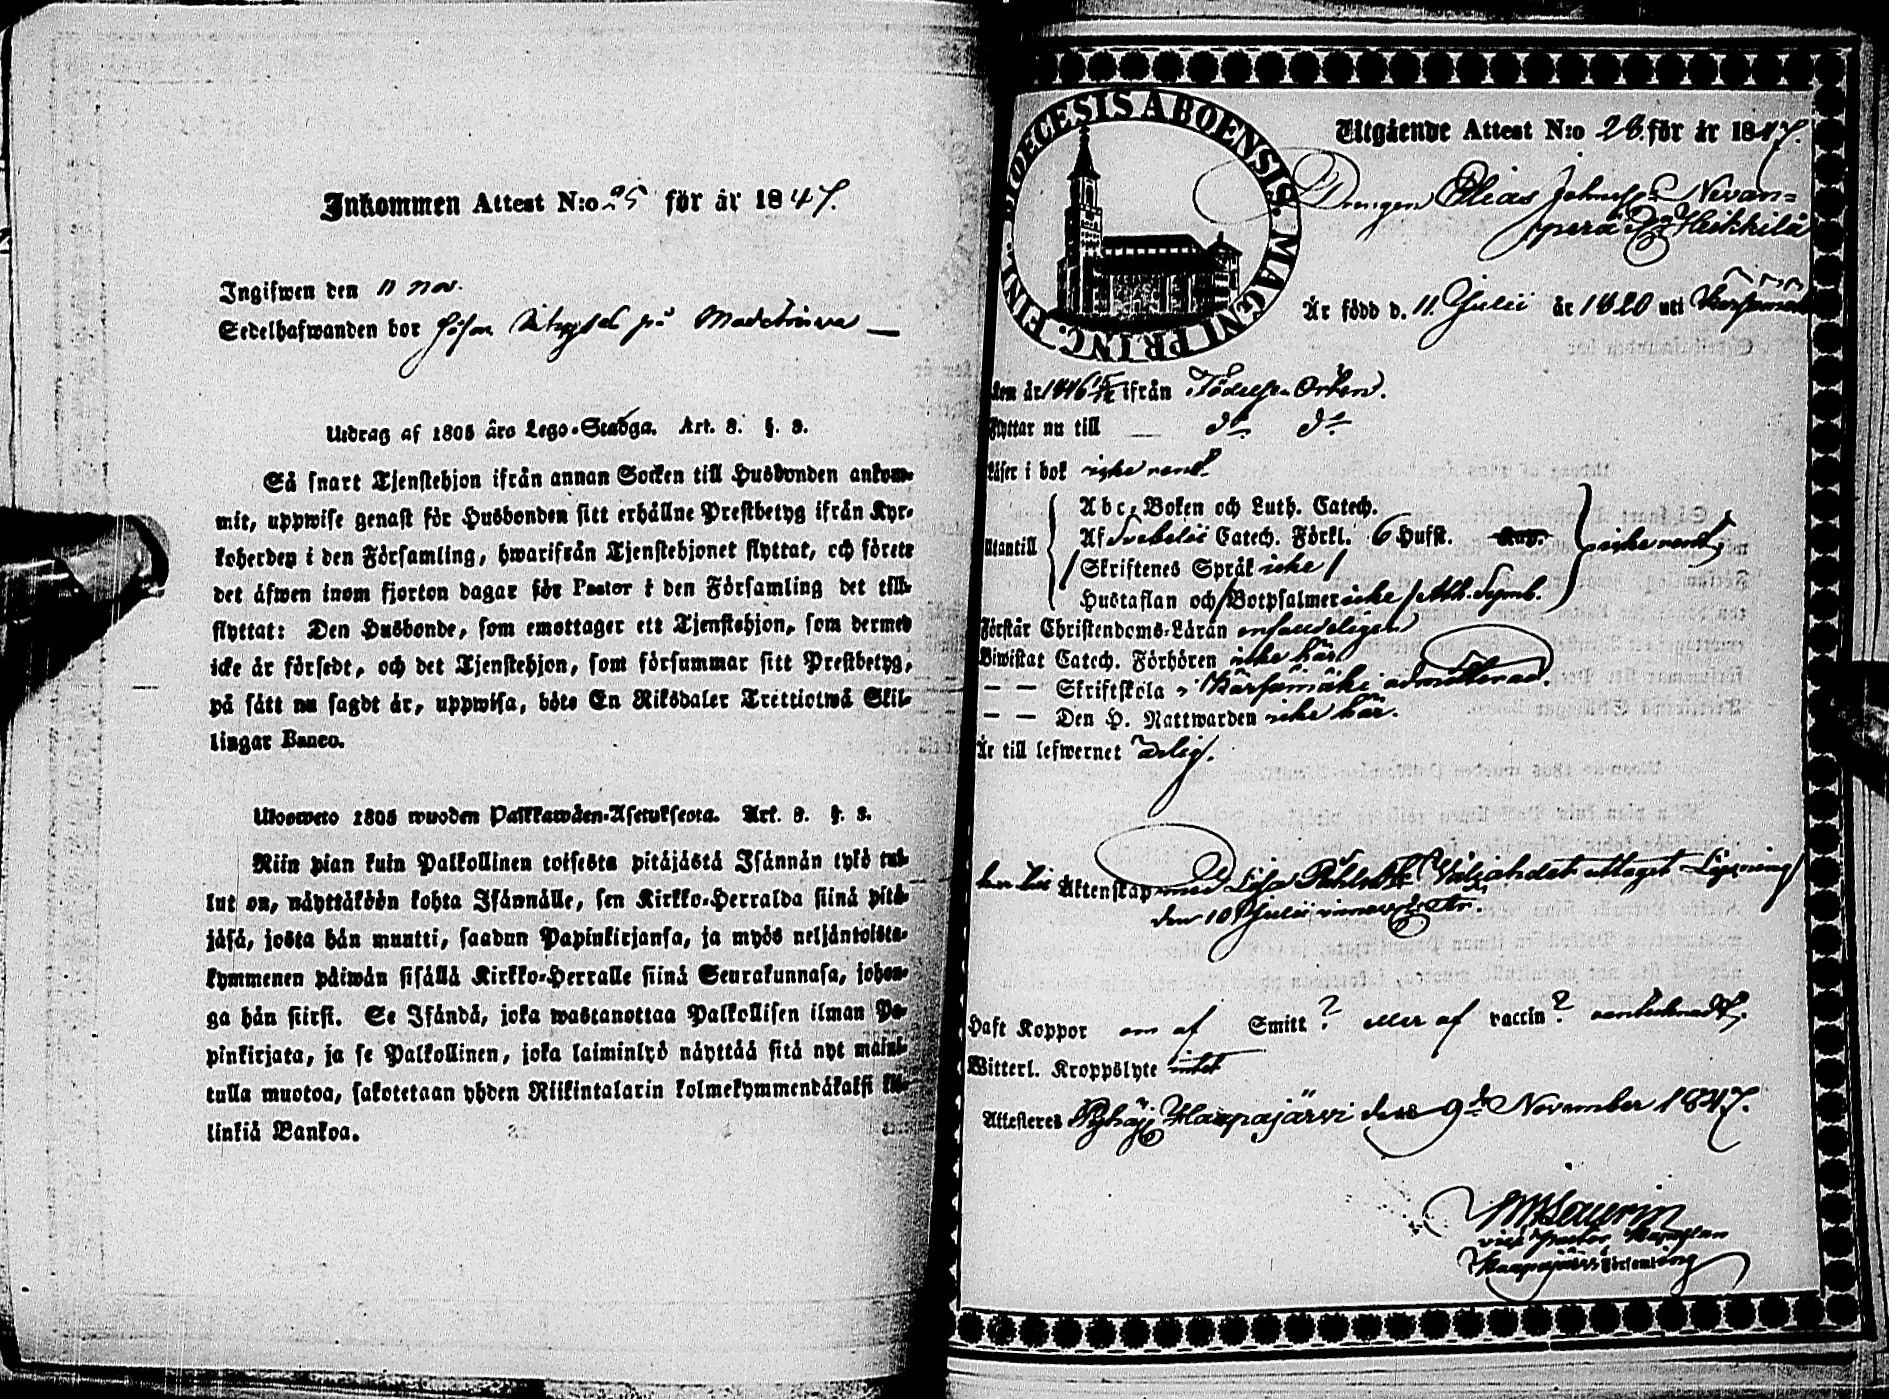 Inkommen Attest N:o 25 för år 1847.
Ingifwen den 11 nov.
Sedelhafwanden bor på
Utdrag af 1805 års Lego-Stadga. Art. 8. §. 8.
Så snart Tjenstehjon ifrån annan Socken till Husbonden ankom-
mit, uppwise genast för Husbonden sitt erhållne Prestbetyg ifrån Kyr-
koherden i den Församling, hwarifrån Tjenstehjonet flyttat, och förete
det äfwen inom fjorton dagar för Pastor i den Församling det till-
flyttat: Den Husbonde, som emottager ett Tjenstehjon, som dermed
icke är försedt, och det Tjenstehjon, som försummar sitt Prestbetyg,
på sätt nu sagdt är, uppwisa, böte En Riksdaler Trettiotwå Skil-
lingar Banco.
Ulosweto 1805 wuoden Palkkawäen-Asetuksesta. Art. 8. §. 8.
Niin pian kuin Palkollinen toisesta pitäjästä Isännän tykö tul-
lut on, näyttäköön kohta Isännälle, sen Kirkko-Herralda siinä pitä-
jäsä, josta hän muutti, saadun Papinkirjansa, ja myös neljäntoista-
kymmenen päiwän sisällä Kirkko-Herralle siinä Seurakunnasa, johon-
ga hän siirsi. Se Isändä, joka wastanottaa Palkollisen ilman Pa-
pinkirjata, ja se Palkollinen, joka laiminlyö näyttää sitä nyt maini-
tulla muotoa, sakotetaan yhden Riikintalarin kolmekymmendäkaksi kil-
linkiä Bankoa.
DIOECESIS ABOENSIS. MAGNI PRINC. FINL.
Utgående Attest N:o 28. för år 1847.
Drengen Elias Johnsson Nevan-
perä Heikkilä
Är född d. 11 Julii år 1820 uti
kom år 1846 ifrån Födelse Orten.
Flyttar nu till — do do
Läser i bok icke rent.
Utantill
Abc-Boken och Luth. Catech.
Af Svebelii Catech. Förkl. 6 Hufst.
Skriftenes Språk icke
Hustaflan och Botpsalmer icke Ath. Symb.
icke rent
Förstår Christendoms-Läran enfaldeligen
Biwistat Catech. Förhören icke här
— — Skriftskola i Kärsämäki admitterad.
— — Den H. Nattwarden icke här.
Är till lefwernet ärlig.
Äktenskap med Lisa uttaget Lysning
den 10 Julii
Haft Koppor om af Smitt? eller af vaccin?
Witterl. Kroppslyte intet
Attesteres Pyhäj. Haapajärvi den 9de November 1847.
vice pastor, Kapellan
Haapajärvi Församling